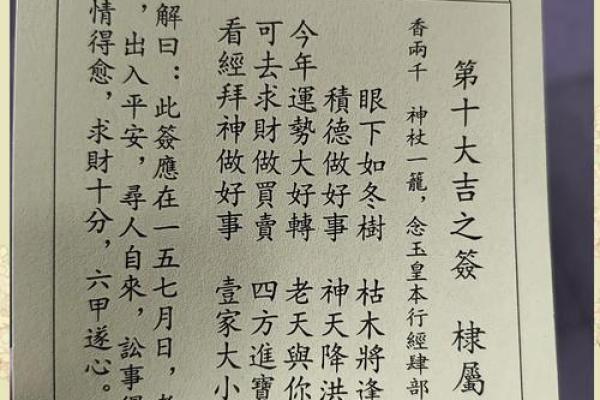 第十大吉之簽 棣屬
香兩千 神杖一籠，念玉皇本行經肆部
眼下如冬樹 枯木將逢
積德做好事 神天降洪
今年運勢大好轉 老天與你
可去求財做買賣 四方進寶
看經拜神做好事 壹家大小
解曰：此簽應在一五七月日，
，出入平安，尋人自來，訟事
情得愈，求財十分，六甲遂心。